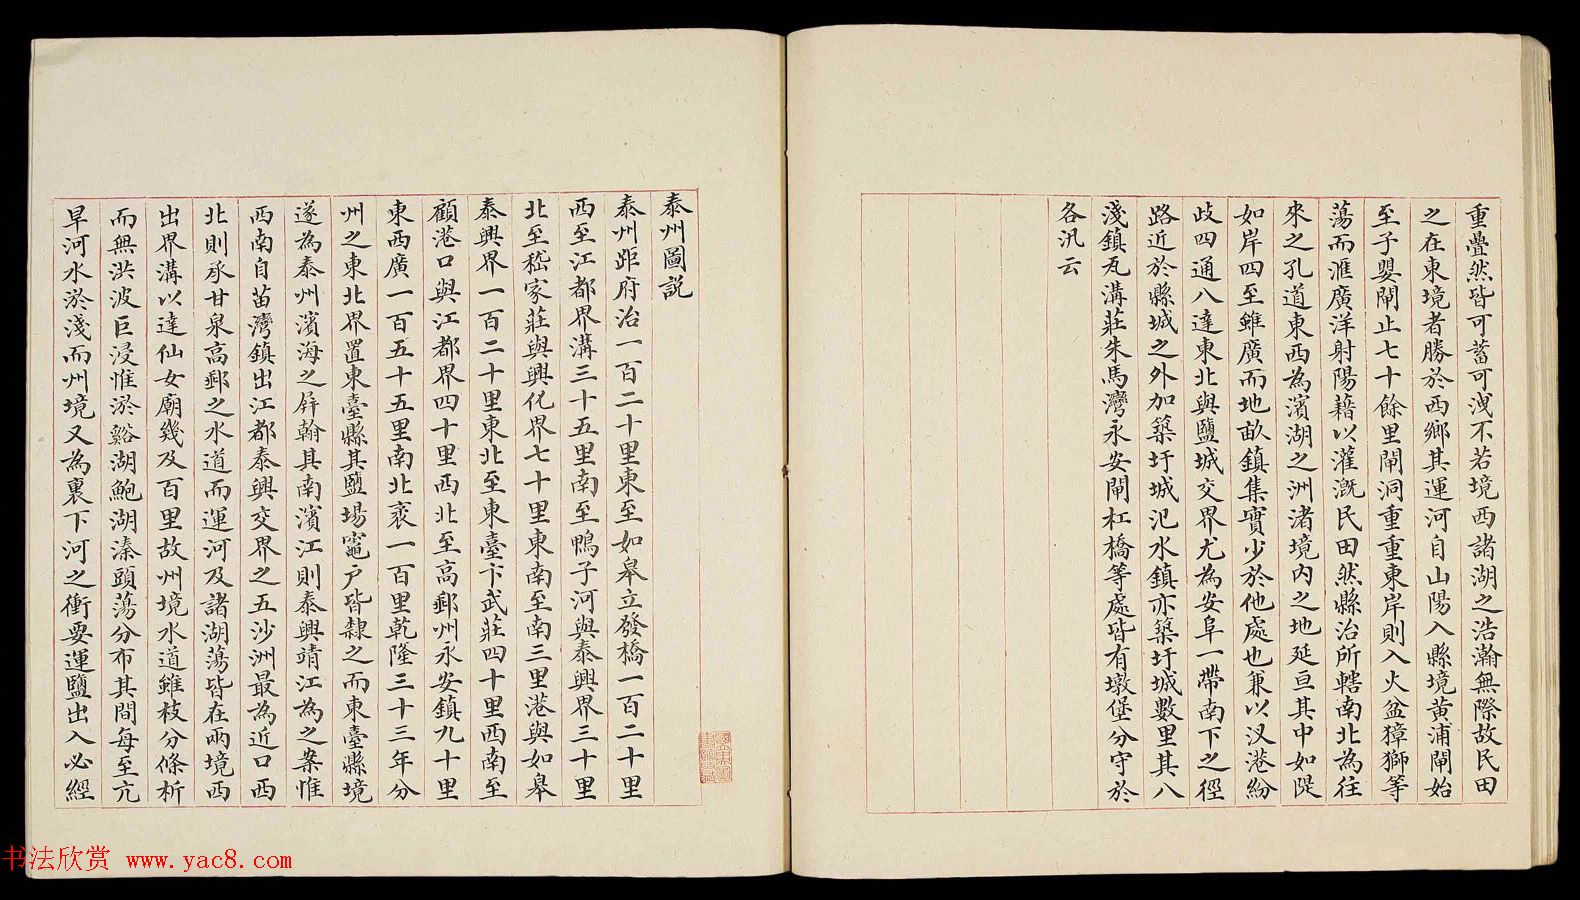 重疊然皆可蓄可洩不若境西諸湖之浩瀚無際故民田
之在東境者勝於西鄉其運河自山陽入縣境黃浦閘始
至子嬰閘止七十餘里閘洞重重東岸則入火盆獐獅等
蕩而滙廣洋射陽藉以灌溉民田然縣治所轄南北為往
來之孔道東西為濱湖之洲渚境內之地延亘其中如隄
如岸四至雖廣而地畝鎮集實少於他處也兼以汊港紛
歧四通八達東北與鹽城交界尤為安阜一帶南下之徑
路近於縣城之外加築圩城氾水鎮亦築圩城數里其八
淺鎮瓦溝莊朱馬灣永安閘杠橋等處皆有墩堡分守於
各汛云
泰州圖説
泰州距府治一百二十里東至如皋立發橋一百二十里
西至江都界溝三十五里南至鴨子河與泰興界三十里
北至嵇家莊與興化界七十里東南至南三里港與如皋
泰興界一百二十里東北至東臺卞武莊四十里西南至
顧港口與江都界四十里西北至高郵州永安鎮九十里
東西廣一百五十五里南北袤一百里乾隆三十三年分
州之東北界置東臺縣其鹽場竈户皆隸之而東臺縣境
遂為泰州濱海之屏翰其南濱江則泰興靖江為之案惟
西南自苗灣鎮出江都泰興交界之五沙洲最為近口西
北則承甘泉高郵之水道而運河及諸湖蕩皆在兩境西
出界溝以達仙女廟幾及百里故州境水道雖枝分條析
而無洪波巨浸惟淤谿湖鮑湖溱頭蕩分布其間每至亢
旱河水淤淺而州境又為裏下河之衝要運鹽出入必經
书法欣赏 www.yac8.com